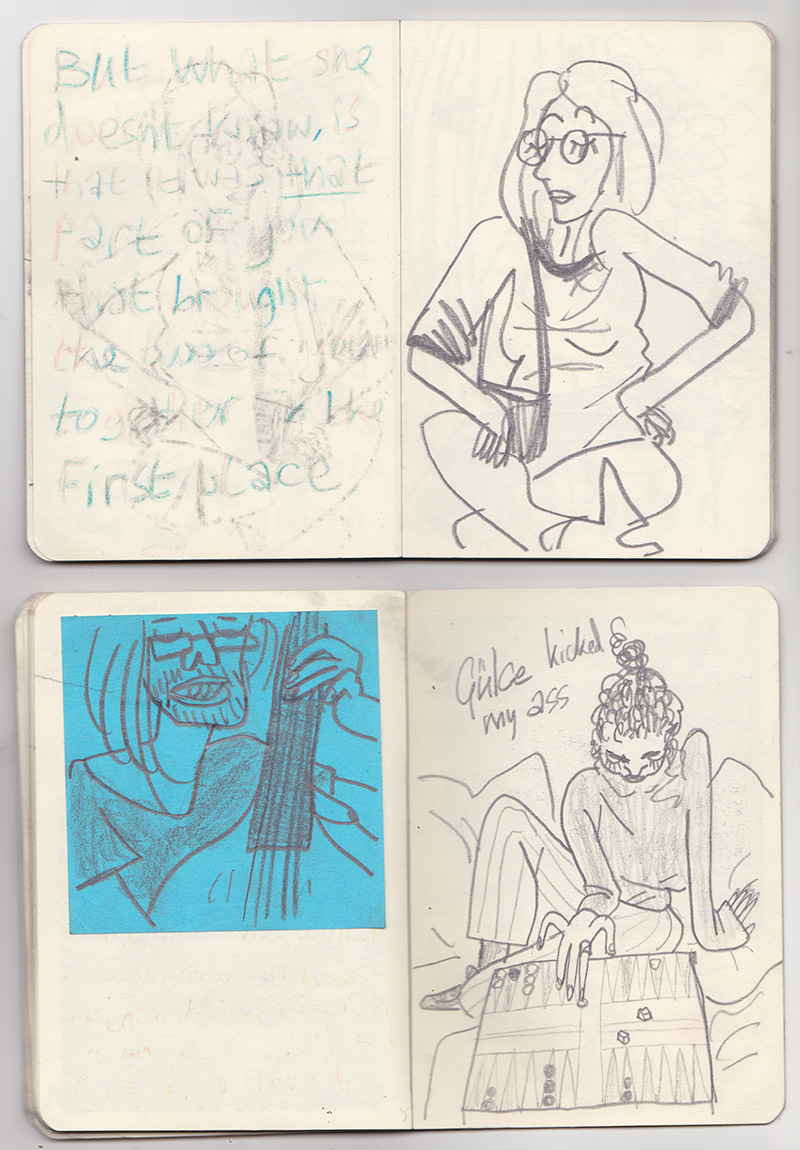 But what she
doesn't know, is
that it was that
part of you
that brought
the two of you
together in the
first place
Gülce kicked
my ass